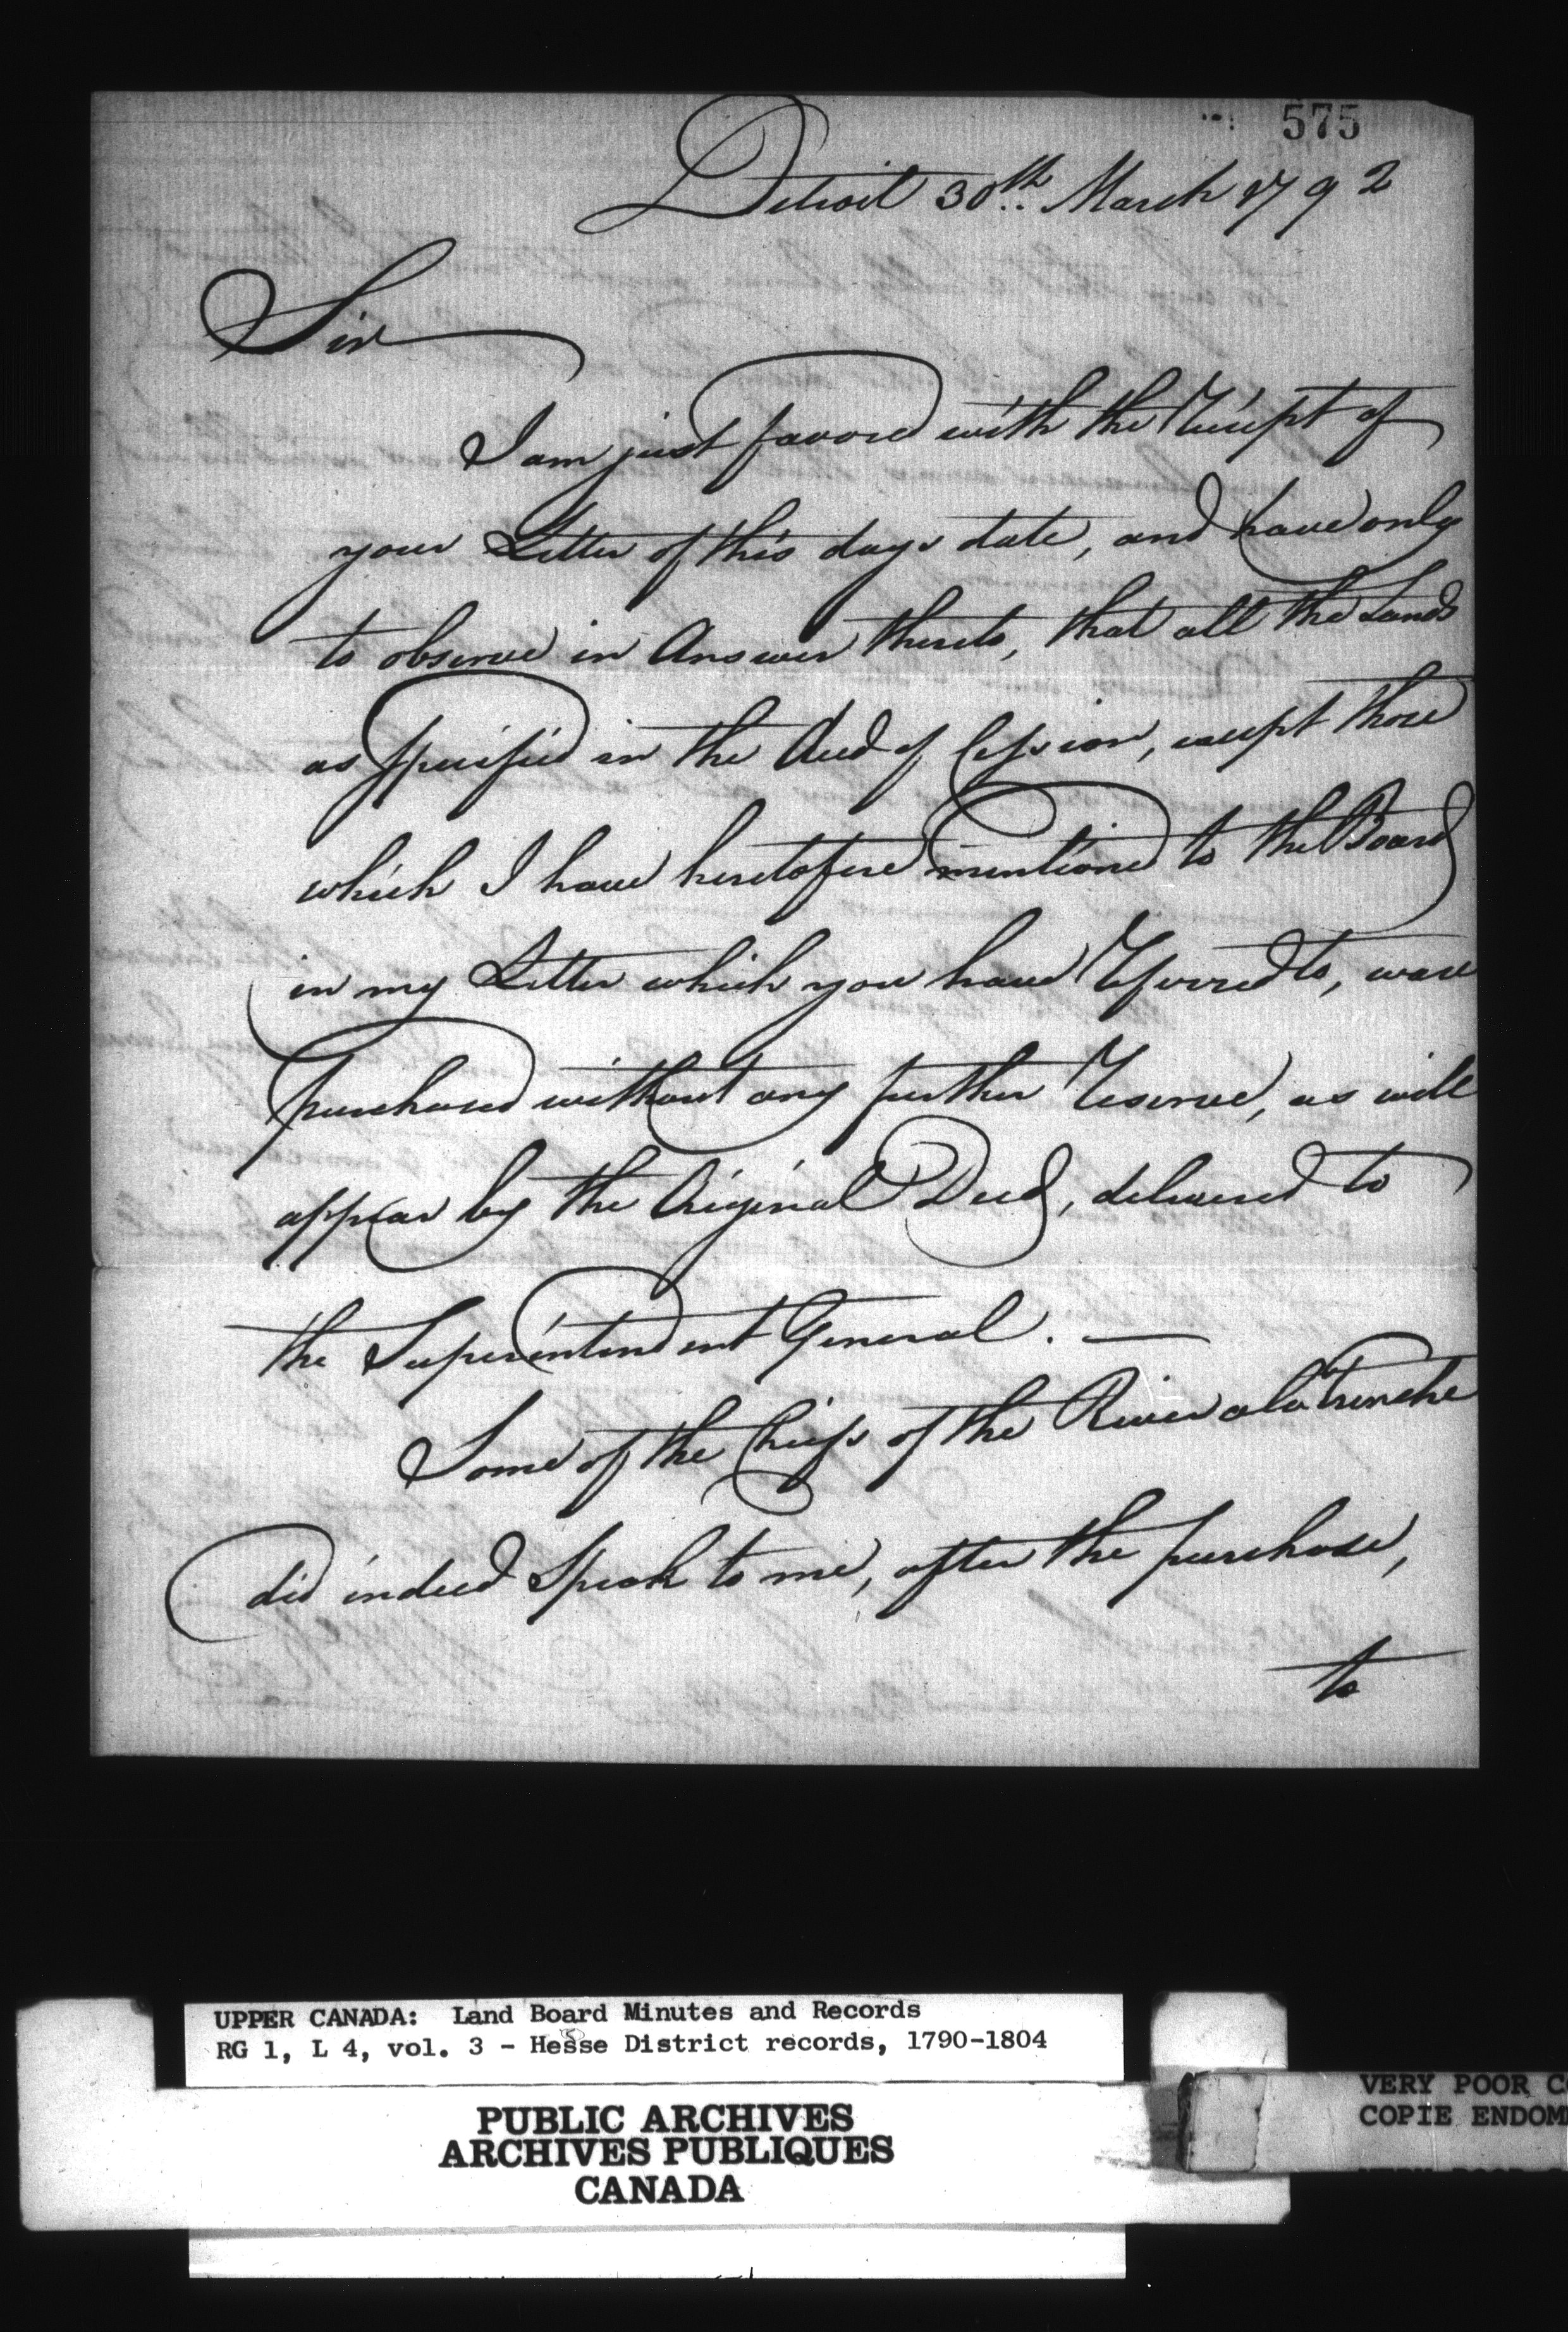 575
Detroit 30th March 1792
Sir
I am just favored with the Receipt of
your Letter of this days date, and have only
to observe in Answer thereto, that all the Lands
as Specified in the Deed of Cession, except those
which I have heretofore mentioned to the Board
in my Letter which you have Referred to, were
purchased without any further Reserve, as will
appear by the Original Deed, delivered to
the Superintendent General. —
Some of the Chiefs of the River a la Trenche
did indeed Speak to me, after the purchase,
to
UPPER CANADA: Land Board Minutes and Records
RG 1, L 4, vol. 3 - Hesse District records, 1790-1804
PUBLIC ARCHIVES
ARCHIVES PUBLIQUES
CANADA
VERY POOR
COPIE